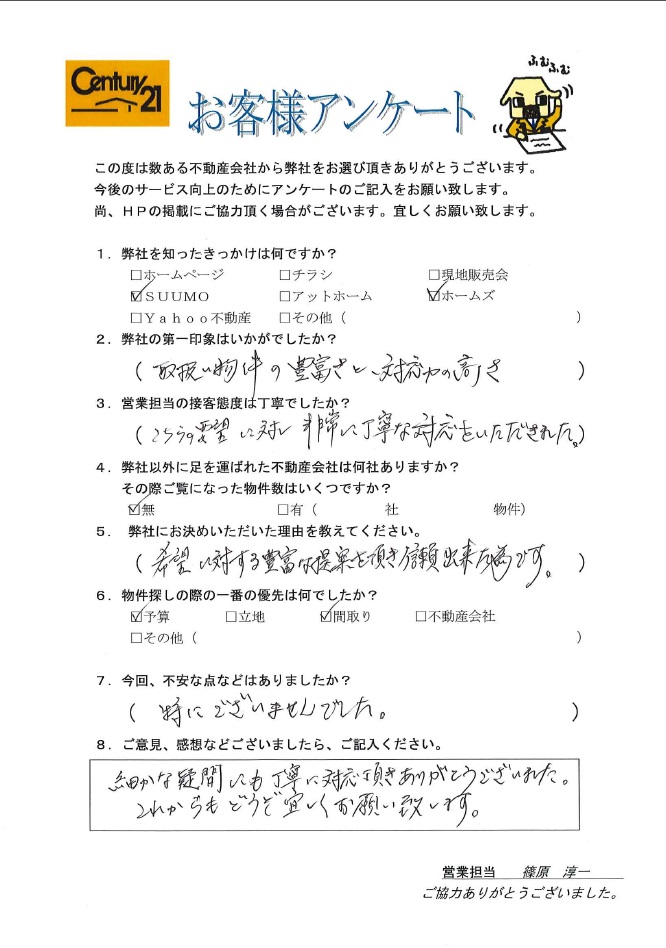 Century 21
お客様アンケート
ふむふむ
この度は数ある不動産会社から弊社をお選び頂きありがとうございます。
今後のサービス向上のためにアンケートのご記入をお願い致します。
尚、HPの掲載にご協力頂く場合がございます。宜しくお願い致します。
1．弊社を知ったきっかけは何ですか？
□ホームページ □チラシ □現地販売会
☑SUUMO □アットホーム ☑ホームズ
□Yahoo不動産 □その他（ ）
2．弊社の第一印象はいかがでしたか？
（取扱い物件の豊富さと、対応力の高さ ）
3．営業担当の接客態度は丁寧でしたか？
（こちらの要望に対し非常に丁寧な対応をいただきました。）
4．弊社以外に足を運ばれた不動産会社は何社ありますか？
その際ご覧になった物件数はいくつですか？
☑無 □有（ 社 物件）
5． 弊社にお決めいただいた理由を教えてください。
（希望に対する豊富な提案を頂き信頼出来た為です。 ）
6．物件探しの際の一番の優先は何でしたか？
☑予算 □立地 ☑間取り □不動産会社
□その他（ ）
7．今回、不安な点などはありましたか？
（ 特にございませんでした。 ）
8．ご意見、感想などございましたら、ご記入ください。
細かな疑問にも丁寧に対応頂きありがとうございました。
これからもどうぞ宜しくお願い致します。
営業担当 篠原 淳一
ご協力ありがとうございました。